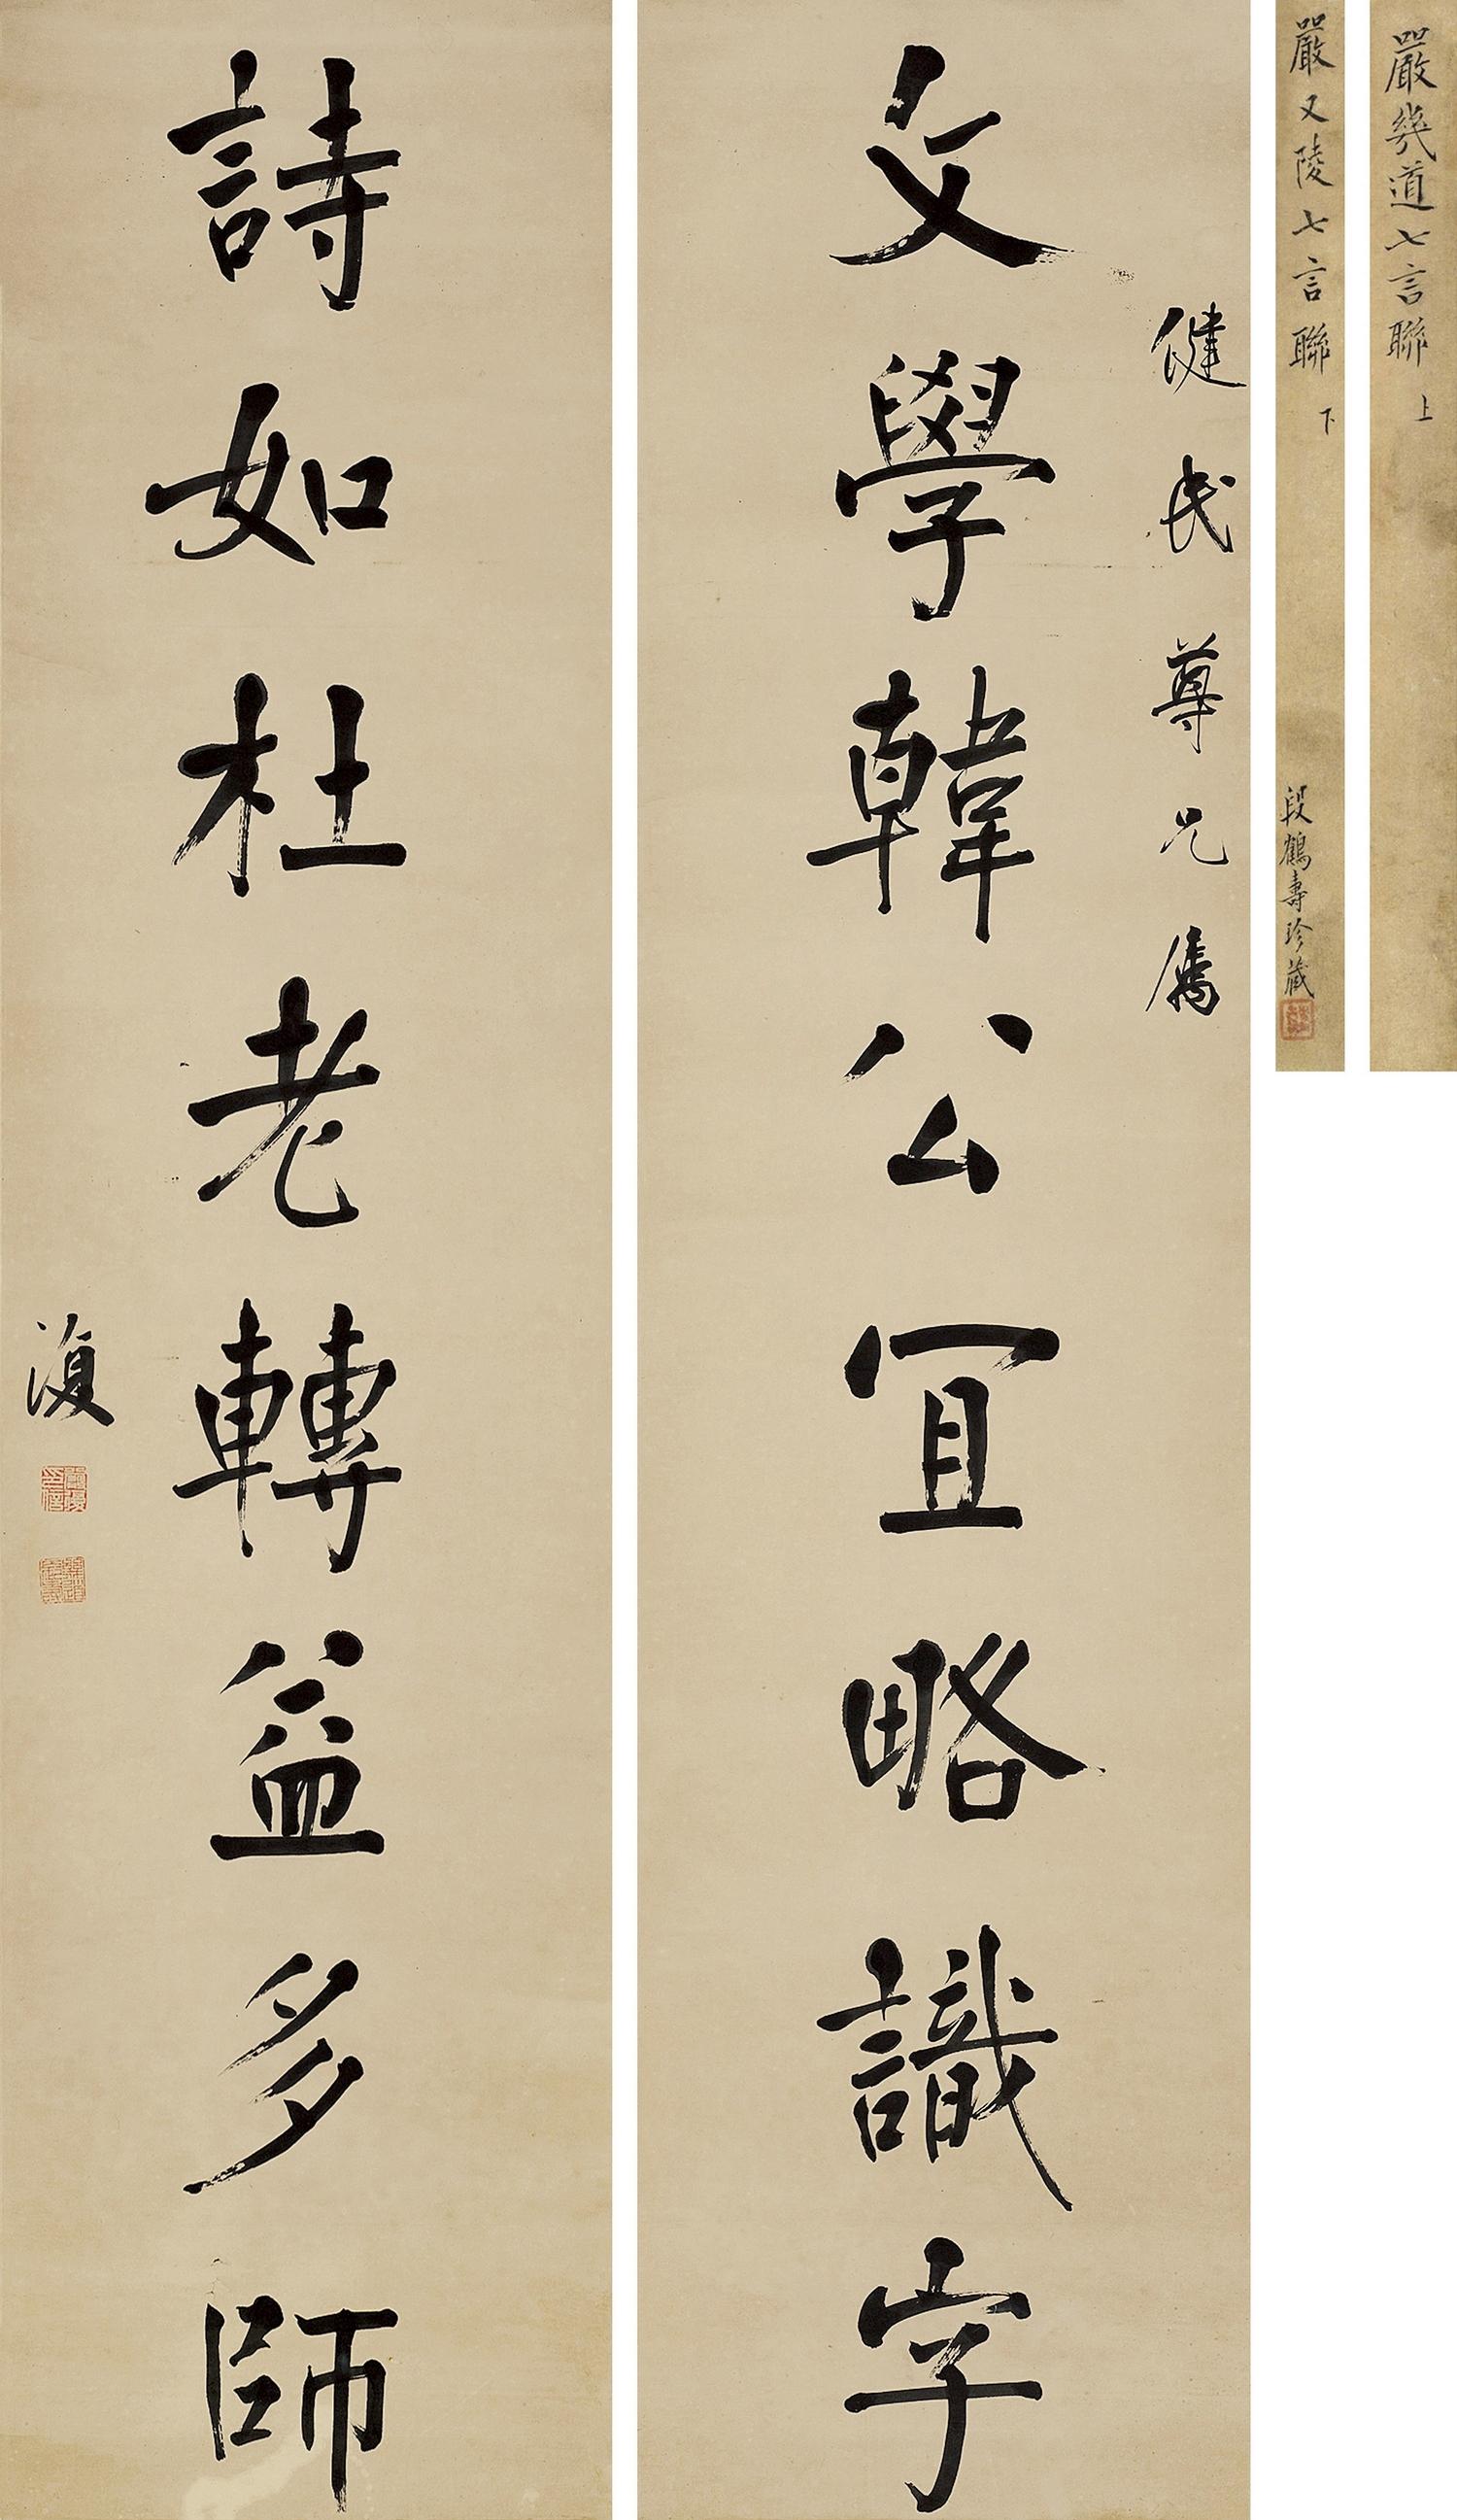 嚴幾道七言聯 上
嚴又陵七言聯 下
段鶴壽珍藏
健民尊兄屬
文學韓公宜略識字
詩如杜老轉益多師
復
嚴復